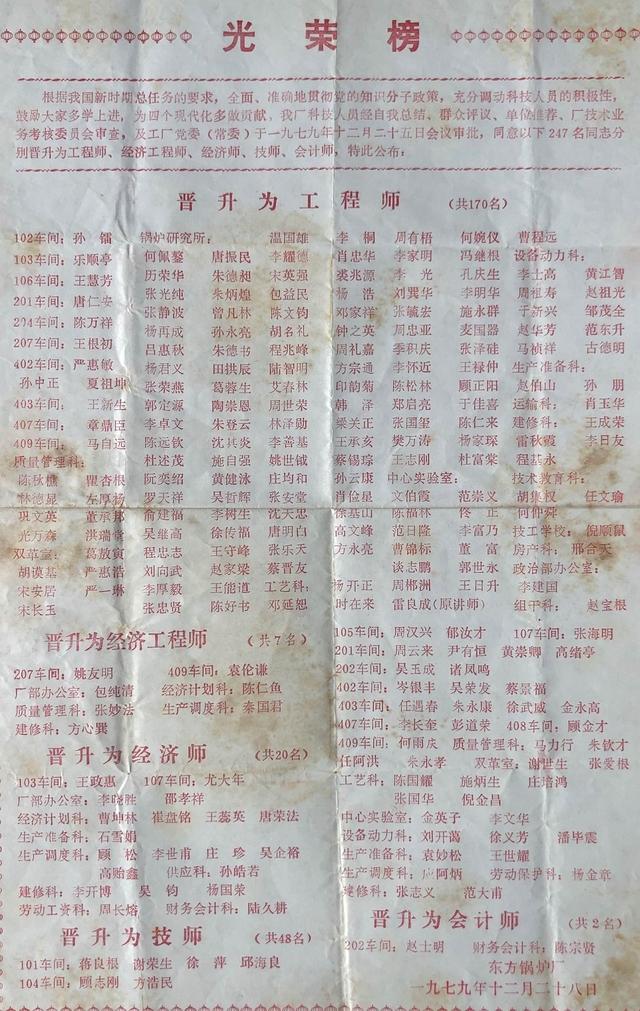 光荣榜
根据我国新时期总任务的要求，全面、准确地贯彻党的知识分子政策，充分调动科技人员的积极性，
鼓励大家多学上进，为四个现代化多做贡献。我厂科技人员经自我总结、群众评议、单位推荐、厂技术业
务考核委员会审查，及工厂党委（常委）于一九七九年十二月二十五日会议审批，同意以下247名同志分
别晋升为工程师、经济工程师、经济师、技师、会计师，特此公布：
晋升为工程师 （共170名）
102车间：孙镭 锅炉研究所： 温国雄 李桐 周有梧 何婉仪 曹程远
103车间：乐顺亭 何佩鏊 唐振民 李耀德 肖忠华 李家明 冯继根 设备动力科：
106车间：王慧芳 历荣华 朱德昶 宋英强 裘兆源 李光 孔庆生 李士高 黄江智
201车间：唐仁安 张光纯 朱炳煌 包益民 杨浩 刘巽华 李明华 周祖寿 赵祖光
204车间：陈万祥 张静波 曾凡林 陈文钧 邓家祥 张毓宏 施永群 于新兴 邹茂全
207车间：王根初 杨再成 孙永亮 胡名礼 钟之英 周忠亚 麦国器 赵华芳 范东升
吕惠秋 朱德书 程兆峰 周礼嘉 季积庆 张泽硅 马祯祥 古德明
402车间：严惠敏 杨君义 田拱辰 陆智明 方宗通 李怀近 王禄仲 生产准备科：
孙中正 夏祖坤 张荣燕 葛蓉生 艾春林 印韵菊 陈松林 顾正阳 赵伯山 孙朋
403车间：王新生 郭定源 陶崇恩 周世荣 韩泽 郑启亮 于佳喜 运输科：肖玉华
407车间：章鼎臣 李卓文 朱登云 林泽勋 梁关正 张国玺 陈仁来 建修科：王成荣
409车间：马自远 陈远钦 沈其炎 李善基 王承亥 樊万涛 杨家琛 雷秋霞 李日友
质量管理科： 杜述茂 施自强 姚世钺 蔡锡琮 王志刚 杜富棠 程基永
陈秋樵 瞿杏根 阮奕绍 黄健泳 庄均和 孙云康 中心实验室： 技术教育科：
林德显 左厚扬 罗天祥 吴哲辉 张安堂 肖俭星 文伯霞 范崇义 胡集权 任文瑜
巩文英 董承邦 俞建福 李树生 沈天忠 徐基山 陈福林 佟正 何仲舜
光万森 洪瑞堂 吴继高 徐传福 唐明白 高文峰 范日隆 李富乃 技工学校：倪顺鼠
双革室：葛放寅 程忠志 王守峰 张乐天 方永亮 曹锦标 董富 房产科：邢合天
胡谟基 严惠浩 刘向武 赵家梁 蔡晋友 谈志鹏 郭世永 政治部办公室：
宋安居 严一琳 李厚毅 王能道 工艺科： 杨开正 周郴洲 王日升 李建国
宋长玉 张忠贤 陈好书 邓延恕 时在来 雷良成（原讲师） 组干科：赵宝根
晋升为经济工程师 （共7名）
207车间：姚友明 409车间：袁伦谦
厂部办公室：包纯清 经济计划科：陈仁鱼
质量管理科：张妙法 生产调度科：秦国君
建修科：方心巽
晋升为经济师 （共20名）
103车间：王政惠 107车间：尤大年
厂部办公室：李晓胜 邵孝祥
经济计划科：曹坤林 崔盘铭 王蕊英 唐荣法
生产准备科：石雪娟
生产调度科：顾松 李世甫 庄珍 吴企裕
高贻鑫 供应科：孙皓若
建修科：李开博 吴钧 杨国荣
劳动工资科：周长熔 财务会计科：陆久耕
晋升为技师 （共48名）
101车间：蒋良根 谢荣生 徐萍 邱海良
104车间：顾志刚 方浩民
105车间：周汉兴 郁汝才 107车间：张海明
201车间：周云来 尹有恒 黄崇卿 高绪亭
202车间：吴玉成 诸凤鸣
402车间：岑银丰 吴荣发 蔡景福
403车间：任遇春 朱永康 徐武威 金永高
407车间：李长奎 彭道荣 408车间：顾金才
409车间：何雨庆 质量管理科：马力行 朱钦才
任阿洪 朱永孝 双革室：谢世生 张爱根
工艺科：陈国耀 施炳生 庄培鸿
张国华 倪金昌
中心实验室：金英子 李文华
设备动力科：刘开蔼 徐义芳 潘毕震
生产准备科：袁妙松 王世耀
生产调度科：应阿炳 劳动保护科：杨金章
建修科：张志义 范大甫
晋升为会计师 （共2名）
202车间：赵士明 财务会计科：陈宗贤
东方锅炉厂
一九七九年十二月二十八日